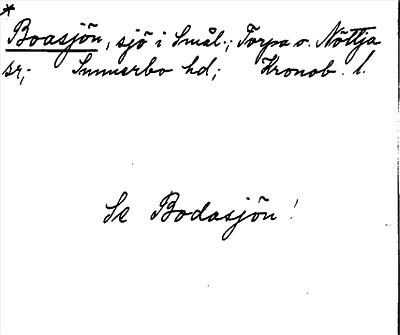 *
Boasjön, sjö i Smål.; Torpa o. Nöttja
sr; Sunnerbo hd; Kronob. l.
Se Bodasjön!